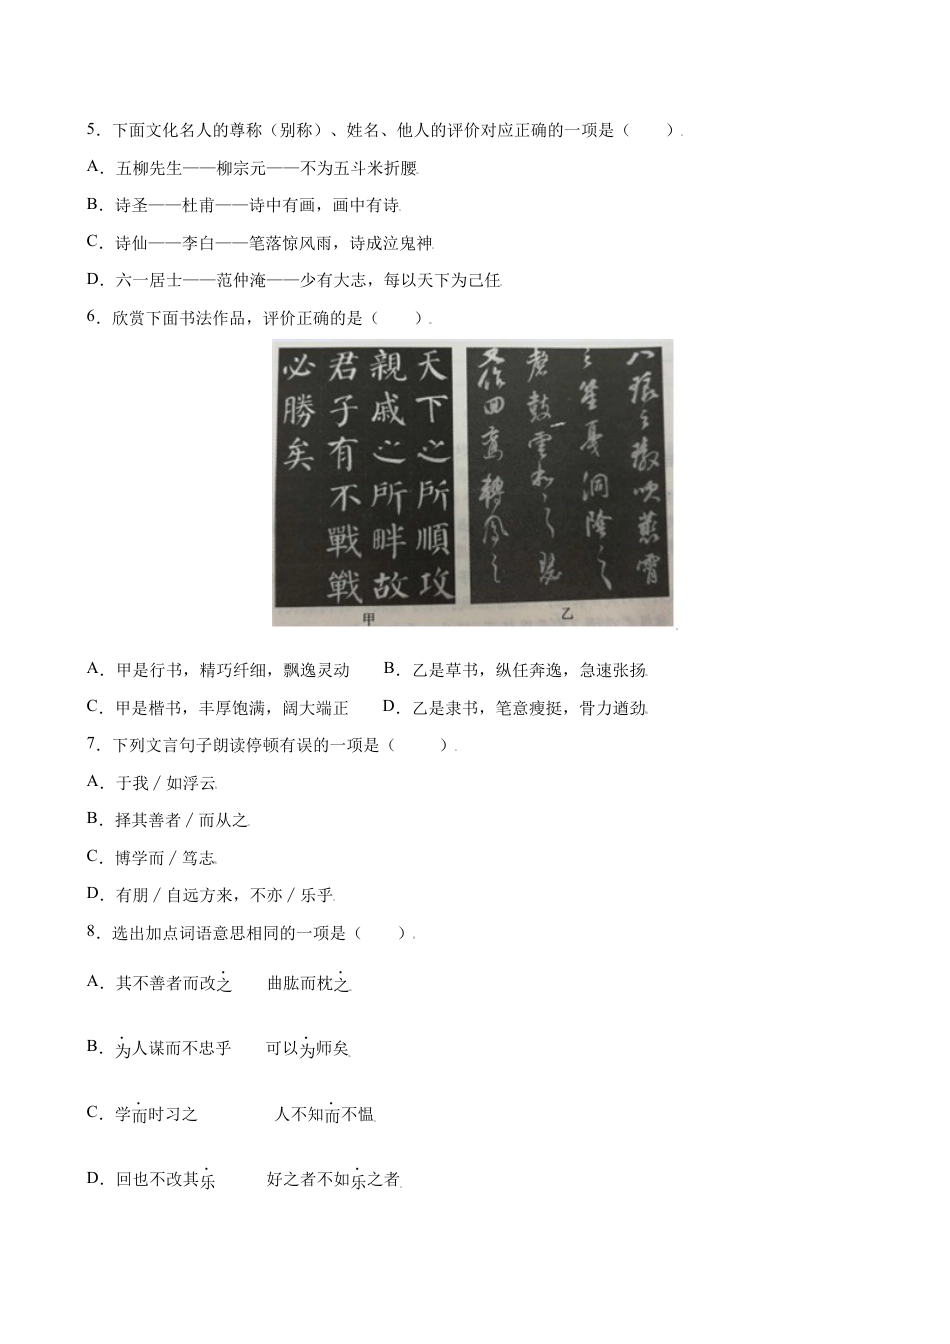 5．下面文化名人的尊称（别称）、姓名、他人的评价对应正确的一项是（　　）
A．五柳先生——柳宗元——不为五斗米折腰
B．诗圣——杜甫——诗中有画，画中有诗
C．诗仙——李白——笔落惊风雨，诗成泣鬼神
D．六一居士——范仲淹——少有大志，每以天下为己任
6．欣赏下面书法作品，评价正确的是（　　）
天下之所順攻
親戚之所畔故
君子有不戰戰
必勝矣
甲
乙
A．甲是行书，精巧纤细，飘逸灵动　　B．乙是草书，纵任奔逸，急速张扬
C．甲是楷书，丰厚饱满，阔大端正　　D．乙是隶书，笔意瘦挺，骨力遒劲
7．下列文言句子朗读停顿有误的一项是（　　）
A．于我／如浮云
B．择其善者／而从之
C．博学而／笃志
D．有朋／自远方来，不亦／乐乎
8．选出加点词语意思相同的一项是（　　）
A．其不善者而改之　　曲肱而枕之
B．为人谋而不忠乎　　可以为师矣
C．学而时习之　　人不知而不愠
D．回也不改其乐　　好之者不如乐之者